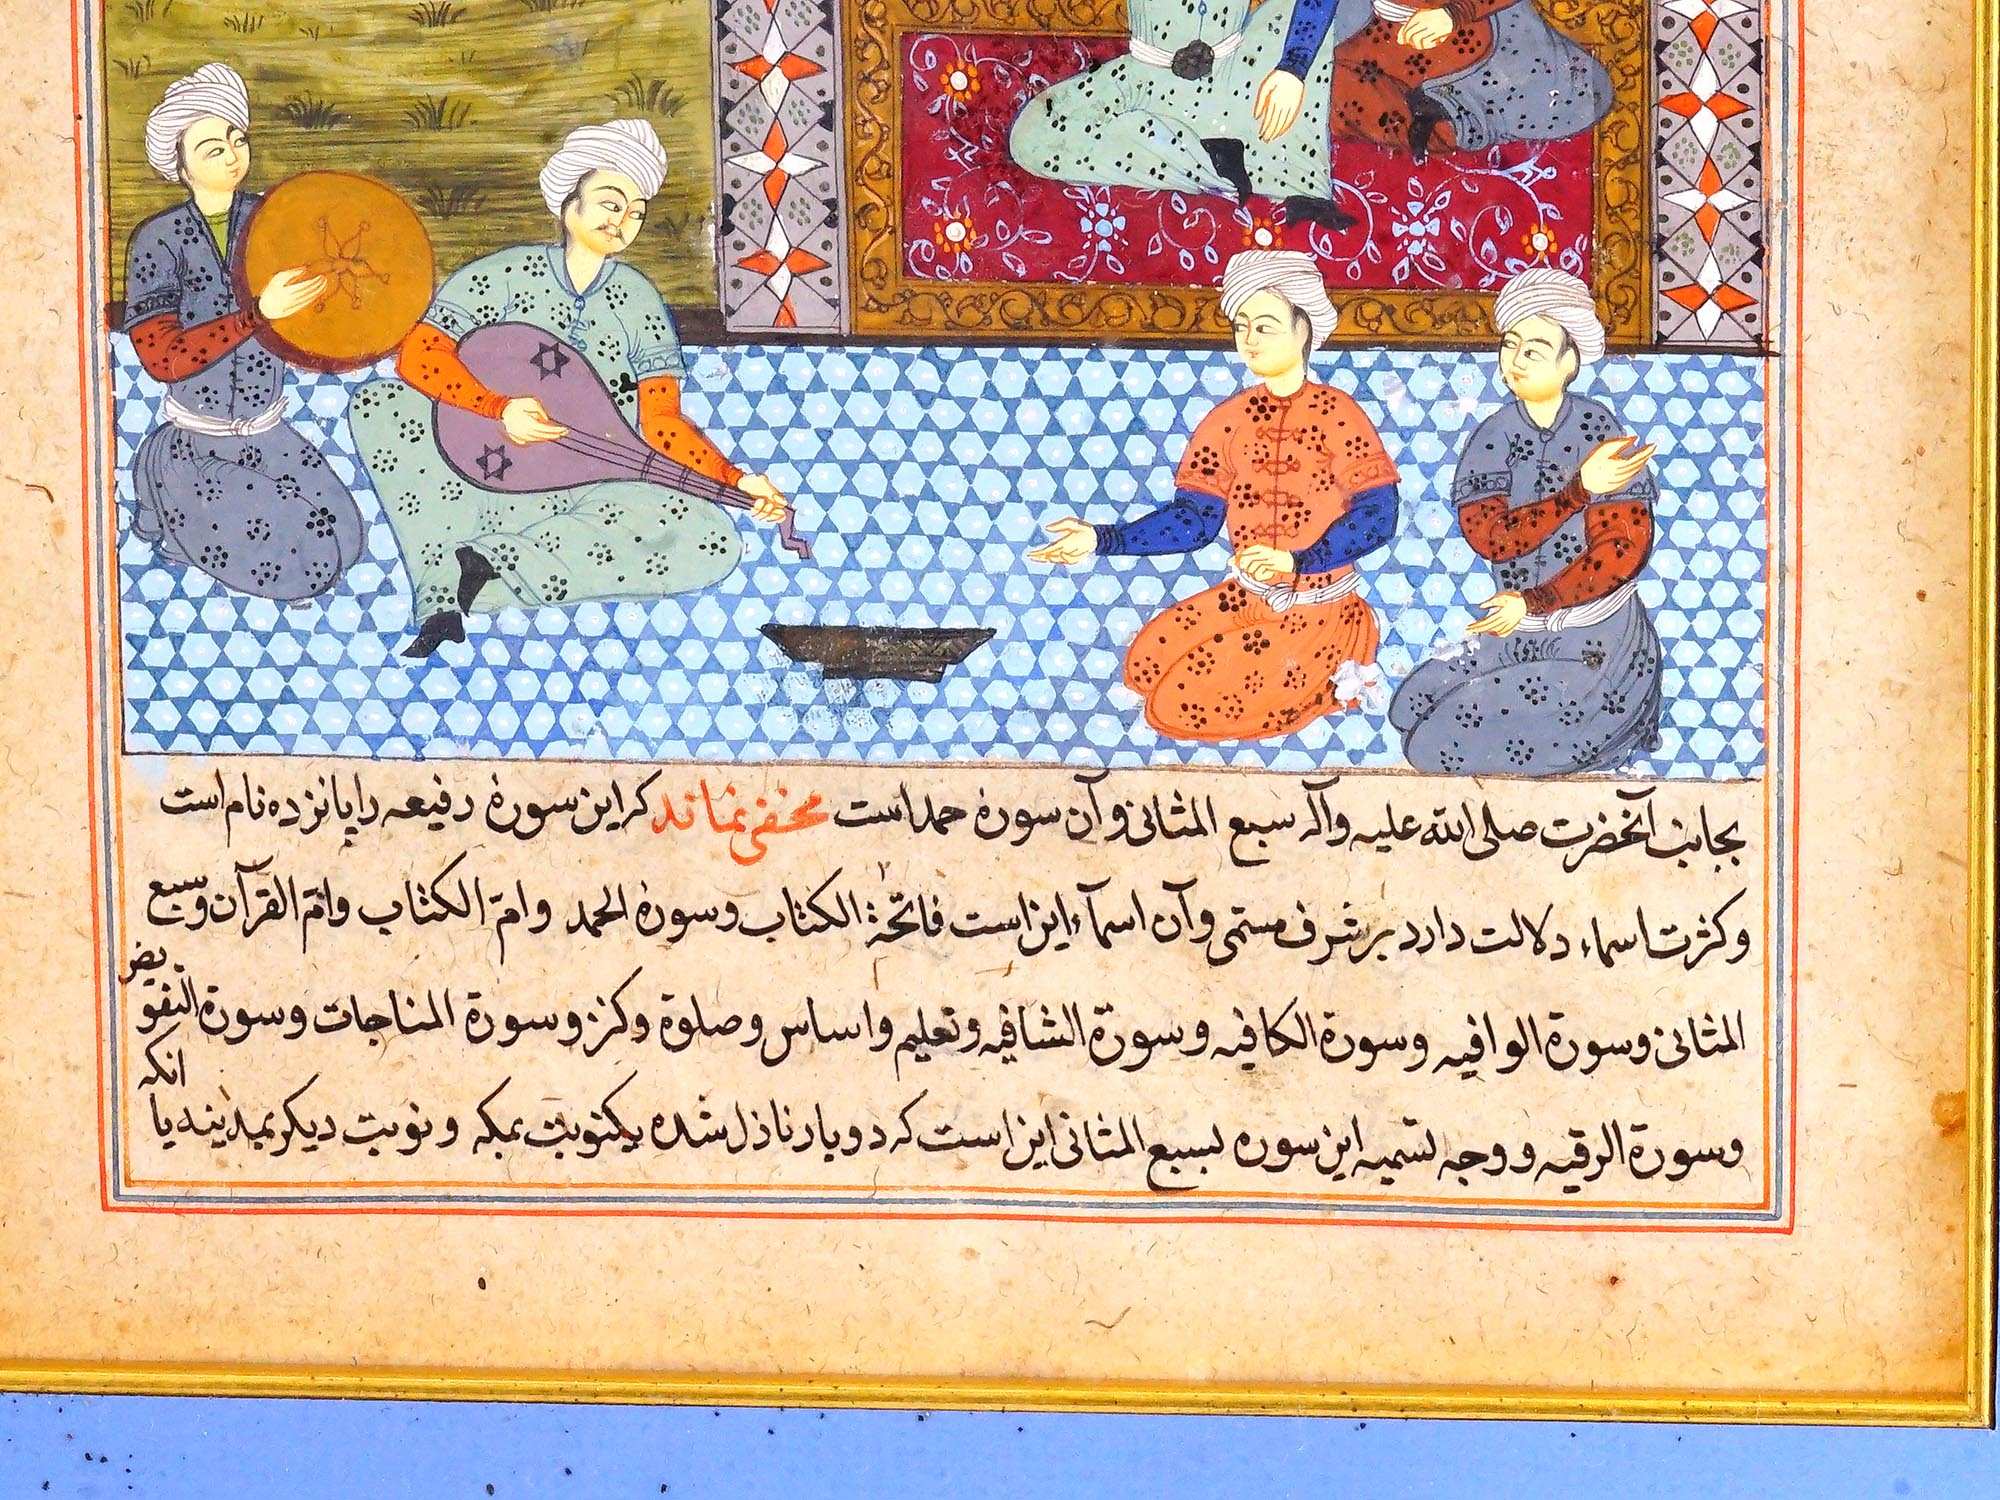 بجانب آنحضرت صلی الله علیه وآله سبع المثانی وآن سورۀ حمد است مخفی نماند که این سورۀ رفیعه را پانزده نام است
وکثرت اسماء دلالت دارد بر شرف مسمی وآن اسمآء این است فاتحة الکتاب وسورۀ الحمد وامّ الکتاب وامّ القرآن وسبع
المثانی وسورة الوافیه وسورة الکافیه وسورة الشافیه وتعلیم واساس وصلوة وکنز وسورة المناجات وسورة التفویض
وسورة الرقیه ووجه تسمیه این سوره بسبع المثانی این است که دوبار نازل شده یکنوبت بمکه ونوبت دیکر بمدینه یا انکه